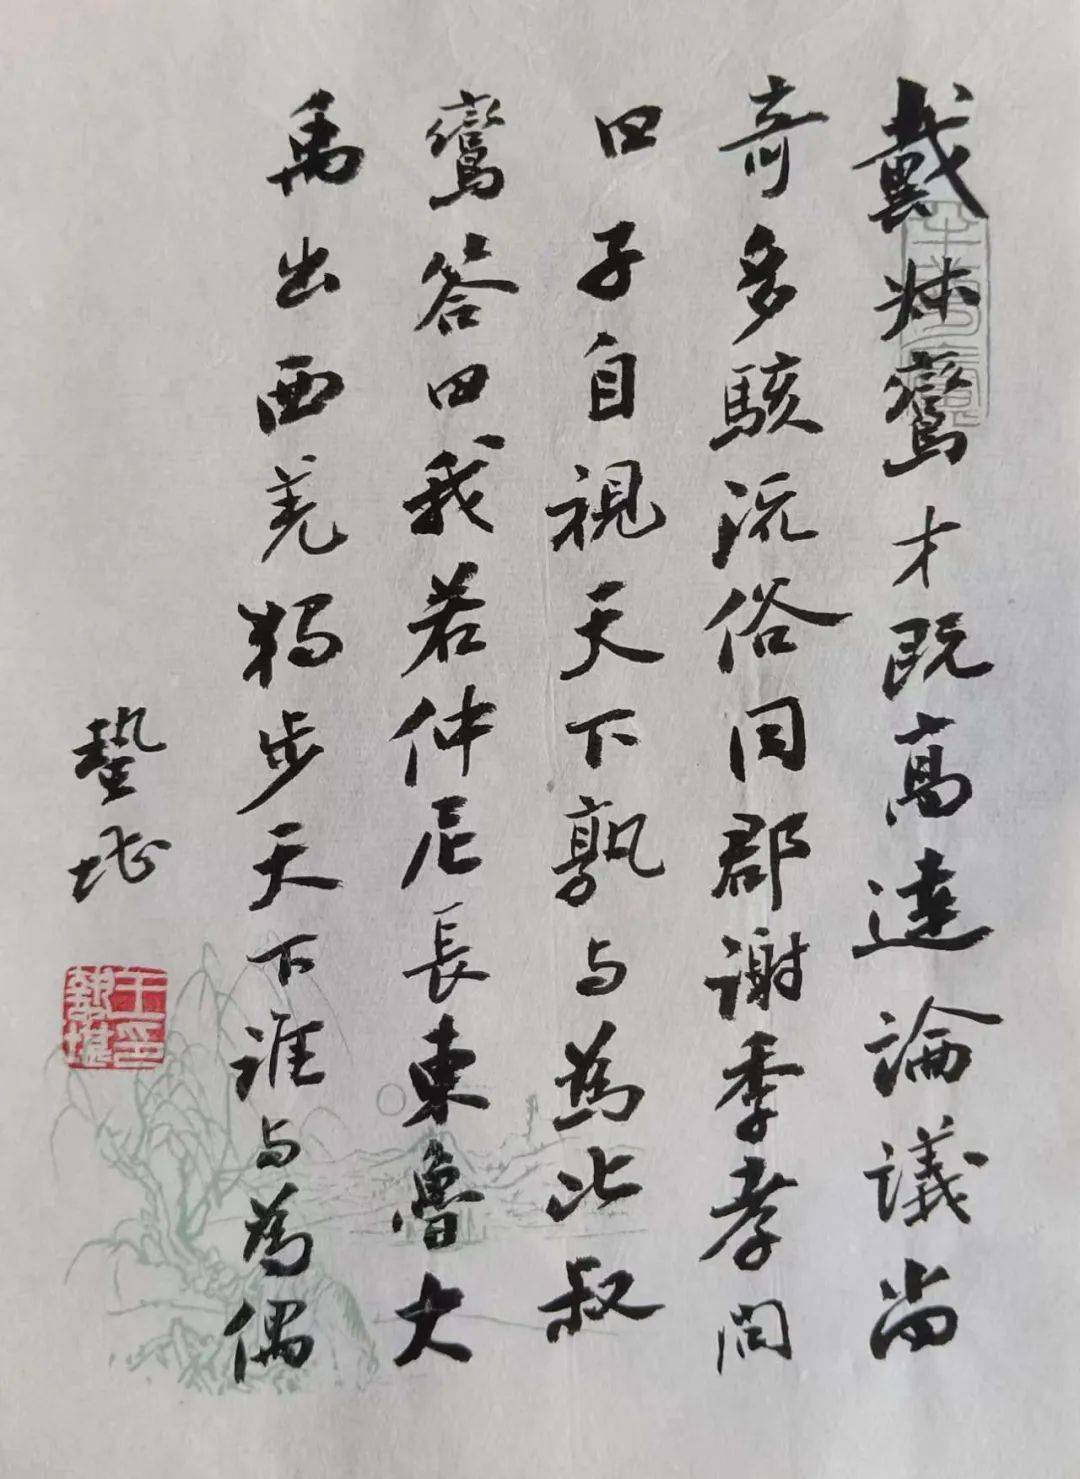 戴叔鸞才既高達論議尚
奇多駭流俗同郡謝季孝問
曰子自視天下孰与為比叔
鸞答曰我若仲尼長東魯大
禹出西羌獨步天下誰与為偶
蟄堪
王印蟄堪
半夢廬